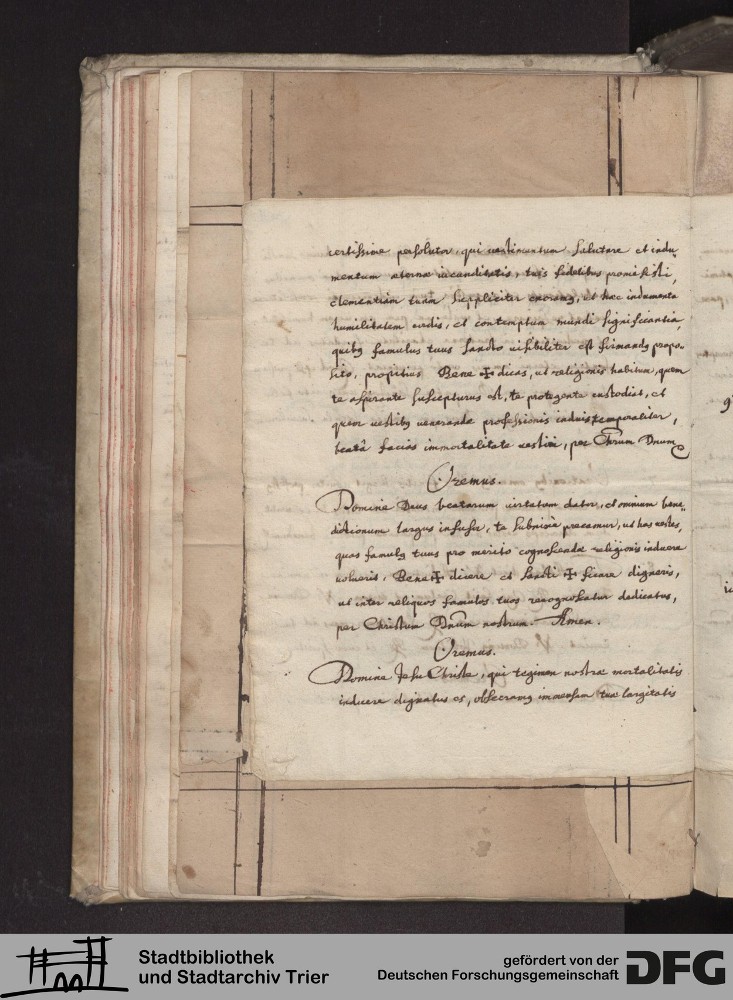 certissime persolutor, qui vestimentum salutare et indu-
mentum æternæ iucunditatis, tuis fidelibus promisisti,
clementiam tuam suppliciter exoramꝯ, ut hæc indumenta
humilitatem cordis, et contemptum mundi significantia,
quibꝯ famulus tuus sancto visibiliter est firmandꝯ propo-
sito, propitius Bene ✠ dicas, ut religionis habitum, quem
te aspirante suscepturus est, te protegente custodiat, et
quem vestibꝯ venerandæ professionis induis temporaliter,
beatâ facias immortalitate vestiri, per Chrum Dnum
Oremus.
Domine Deus beatorum virtutum dator, et omnium bene-
dictionum largus infusor, te subnixè precamur, ut has vestes,
quas famulꝯ tuus pro merito cognoscendæ religionis induere
voluerit, Bene ✠ dicere et sancti ✠ ficare digneris,
ut inter reliquos famulos tuos recognoscatur dedicatus,
per Christum Dnum nostrum. Amen.
Oremus.
Domine Jesu Christe, qui tegimen nostræ mortalitatis
induere dignatus es, obsecramꝯ immensam tuæ largitatis
Stadtbibliothek
und Stadtarchiv Trier
gefördert von der
Deutschen Forschungsgemeinschaft
DFG